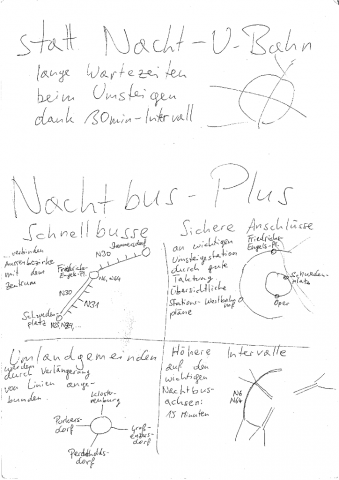 statt Nacht-U-Bahn
lange Wartezeiten
beim Umsteigen
dank 30min-Intervall
Nachtbus-Plus
Schnellbusse
...verbinden
Aussenbezirke
mit dem
Zentrum
N30
Friedrich-
Engels-Pl.
N6, N64
N30
N31
Schweden
platz
Sichere Anschlüsse
an wichtigen
Umsteigstation
durch gute
Taktung.
Übersichtliche
Stations-
pläne
Friedrich-
Engels-Pl.
Schweden-
platz
Oper
Westbahn
hof
Umlandgemeinden
werden
durch Verlängerung
von Linien ange-
bunden.
Kloster-
neuburg
Purkers-
dorf
Groß-
enzers-
dorf
Perchtolds-
dorf
Höhere Intervalle
auf den
wichtigen
Nachtbus-
achsen:
15 Minuten
N6
N64